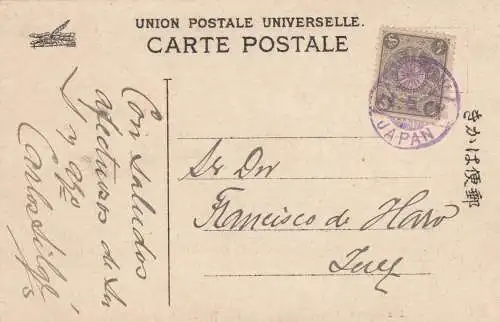 UNION POSTALE UNIVERSELLE.
CARTE POSTALE
JAPAN
きかは便郵
Con saludos
afectuosos de su
Carlos
Sr Dn
Francisco de Haro